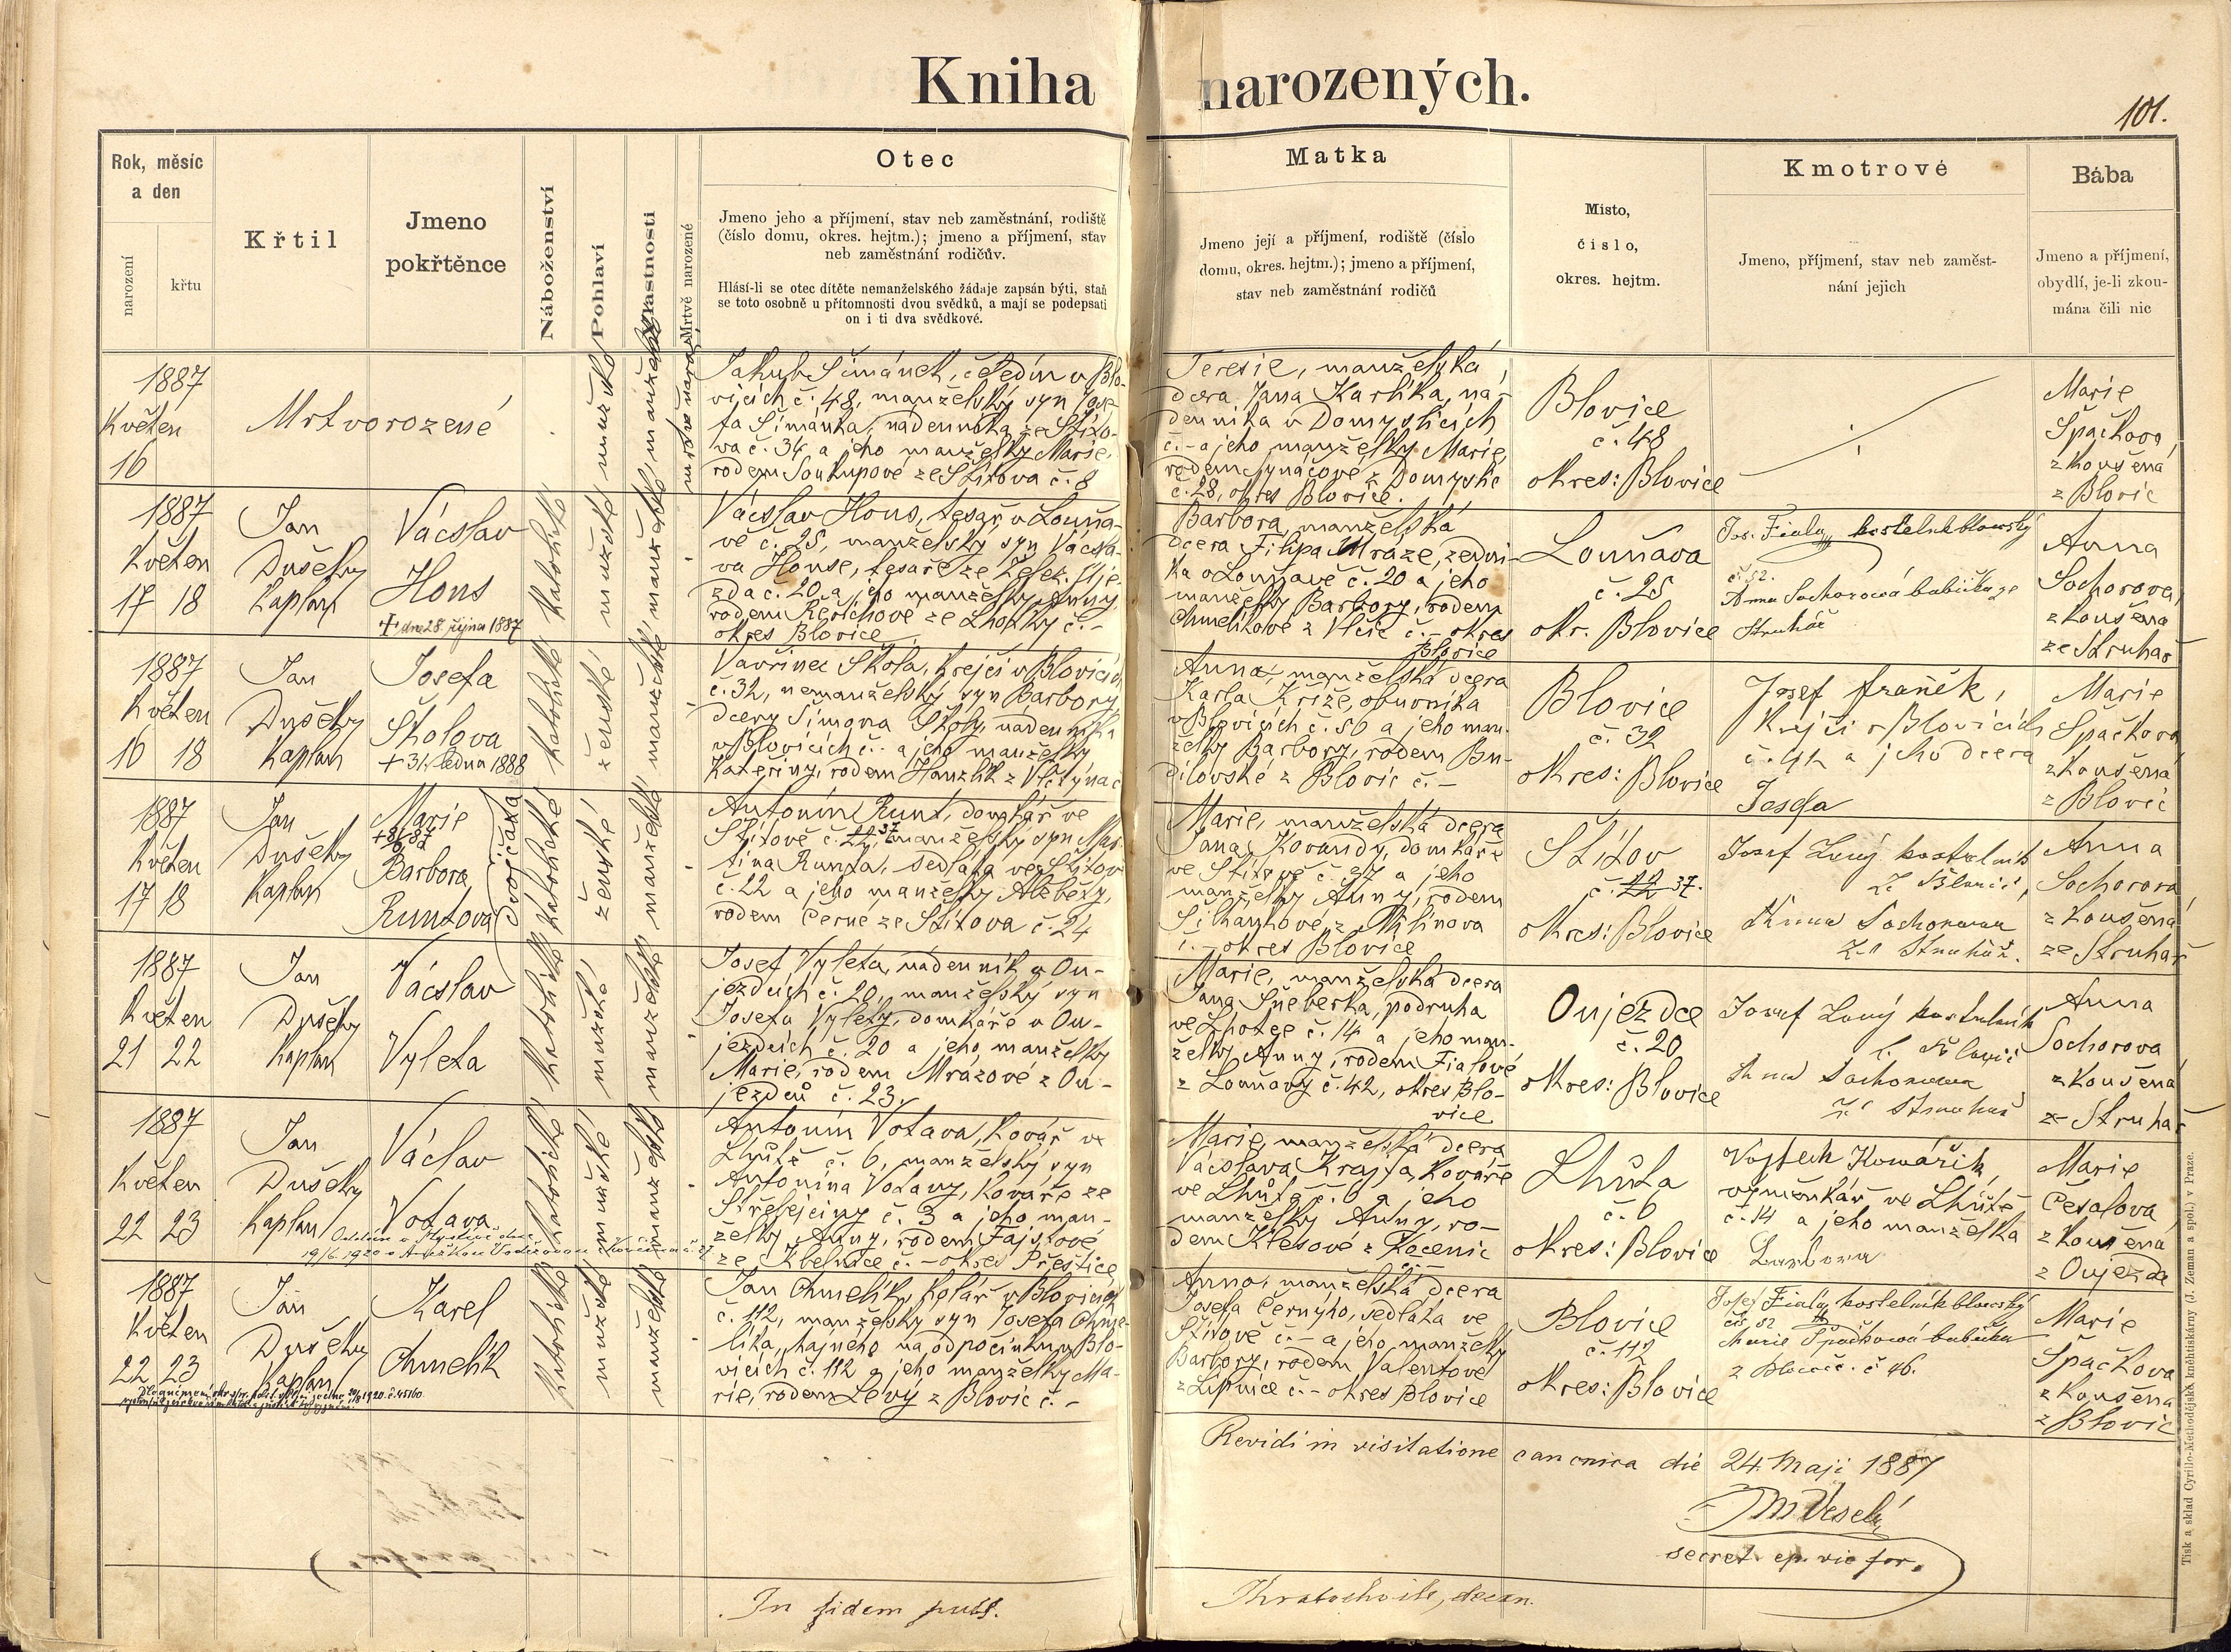 Kniha narozených.
101.
Rok, měsíc
a den
narození
křtu
Křtil
Jmeno
pokřtěnce
Náboženství
Pohlaví
Vlastnosti
Mrtvě narozené
Otec
Jmeno jeho a příjmení, stav neb zaměstnání, rodiště
(číslo domu, okres. hejtm.); jmeno a příjmení, stav
neb zaměstnání rodičův.
Hlásí-li se otec dítěte nemanželského žádaje zapsán býti, staň
se toto osobně u přítomnosti dvou svědků, a mají se podepsati
on i ti dva svědkové.
Matka
Jmeno její a příjmení, rodiště (číslo
domu, okres. hejtm.); jmeno a příjmení,
stav neb zaměstnání rodičů
Misto,
číslo,
okres. hejtm.
Kmotrové
Jmeno, příjmení, stav neb zaměst-
nání jejich
Bába
Jmeno a příjmení,
obydlí, je-li zkou-
mána čili nic
1887
Květen
16
Mrtvorozené
mužské
manželské
mrtvě naroz.
Jakub Šimánek, čeledín v Blo-
vicích č. 48, manželský syn Jose-
fa Šimánka, nádenníka ze Štíto-
va č. 34 a jeho manželky Marie,
rodem Soukupové ze Štítova č. 8
Teresie, manželská
dcera Jana Karlíka, ná-
denníka v Domyslicích
č. - a jeho manželky Marie,
rodem
č. 28, okres Blovice.
Blovice
č. 48
okres: Blovice
Marie
Špačkova,
zkoušená
z Blovic
1887
Květen
17 18
Jan
Dušek,
kaplan
Vácslav
Hons
+ dne 28. října 1887
katolické
mužské
manželské
Vácslav Hons, tesař v Louňa-
vě č. 25, manželský syn Vácsla-
va Honse, tesaře ze Želez. Új-
zda č. 20 a jeho manželky Anny,
rodem Řeřichové ze Lhotky č. -
okres Blovice
Barbora, manželská
dcera Filipa Mráze, zední-
ka v Louňavě č. 20 a jeho
manželky Barbory, rodem
Chmelíkové z Vlčic č. - okres
Blovice
Louňava
č. 25
okr. Blovice
Jos. Fiala, kostelník blovický
č. 52.
Anna Sochorová babička ze
Struhař
Anna
Sochorova,
zkoušená
ze Struhař
1887
Květen
16 18
Jan
Dušek,
kaplan
Josefa
Školova
+ 31. ledna 1888
katolické
ženské
manželské
Vavřinec Škola, krejčí v Blovicích
č. 32, nemanželský syn Barbory,
dcery Šimona Školy, nádenníka
v Blovicích č. - a jeho manželky
Kateřiny, rodem Hanzlík z Vlčtýna č
Anna, manželská dcera
Karla Kříže, obuvníka
v Blovicích č. 50 a jeho man-
želky Barbory, rodem Bu-
dilovské z Blovic č. -
Blovice
č. 32
okres: Blovice
Josef Franěk,
krejčí v Blovicích
č. 42 a jeho dcera
Josefa
Marie
Špačkova
zkoušená
z Blovic
1887
Květen
17 18
Jan
Dušek,
kaplan
Marie
Barbora
Runtova
dvojčata
katolické
ženské
manželské
Antonín Runt, domkář ve
Štítově č. 22, 37 manželský syn Mar-
tina Runta, sedláka ve Štítov
č. 22 a jeho manželky Alžběty,
rodem Černé ze Štítova č. 24
Marie, manželská dcera
Jana Kovandy, domkáře
ve Štítově č. 27 a jeho
manželky Anny, rodem
Sihankové z Milínova
č. - okres Blovice
Štítov
č. 22 37.
okres: Blovice
Josef Lavý kostelník
z Blovic,
Anna Sochorova
ze Struhař.
Anna
Sochorova
zkoušená
ze Struhař
1887
Květen
21 22
Jan
Dušek,
kaplan
Vácslav
Vyleta
katolické
mužské
manželské
Josef Vyleta, nádenník v Ou-
jezdcích č. 20, manželský syn
Josefa Vylety, domkáře v Ou-
jezdcích č. 20 a jeho manželky
Marie, rodem Mrázové z Ou-
jezdců č. 23.
Marie, manželská dcera
Jana Šneberka, podruha
ve Lhotce č. 14 a jeho man-
želky Anny, rodem Fialové
z Louňavy č. 42, okres Blo-
vice
Oujezdce
č. 20
okres: Blovice
Josef Lavý kostelník
z Blovic
Anna Sochorova
ze Struhař
Anna
Sochorova
zkoušená
ze Struhař
1887
Květen
22 23
Jan
Dušek,
kaplan
Václav
Votava
katolické
mužské
manželské
Antonín Votava, kovář ve
Lhůtě č. 6, manželský syn
Antonína Votavy, kováře ze
Střelejciny č. 3 a jeho man-
želky Anny, rodem Fajstové
ze Kbelnice č. - okres Přeštice
Marie, manželská dcera
Vácslava Krajfa, kováře
ve Lhůtě č. 6 a jeho
manželky Anny, ro-
dem Klesové z Kocenic
č. -
Lhůta
č. 6
okres: Blovice
Vojtěch Kovařík,
výměnkář ve Lhůtě
č. 14 a jeho manželka
Barbora
Marie
Česalova
zkoušená
z Oujezda
1887
Květen
22 23
Jan
Dušek,
kaplan
Karel
Chmelík
katolické
mužské
manželské
Jan Chmelík, kolář v Blovicích
č. 112, manželský syn Josefa Chme-
líka, hajného na odpočinku v Blo-
vicích č. 112 a jeho manželky Ma-
rie, rodem Levý z Blovic č. -
Anna, manželská dcera
Josefa Černýho, sedláka ve
Štítově č. - a jeho manželky
Barbory, rodem Valentové
z Lipnice č. - okres Blovice
Blovice
č. 112
okres: Blovice
Josef Fiala, kostelník blovický
čís. 52
Marie Špačková babička
z Blovic č. 46.
Marie
Špačkova
zkoušená
z Blovic
Revidi in visitatione canonica die 24. Maji 1887
Veselý
secret. ep. vic for.
In fidem publ.
Kratochvíle, decan.
Tisk a sklad Cyrillo-Methodějská knihtiskárny (J. Zeman a spol.) v Praze.